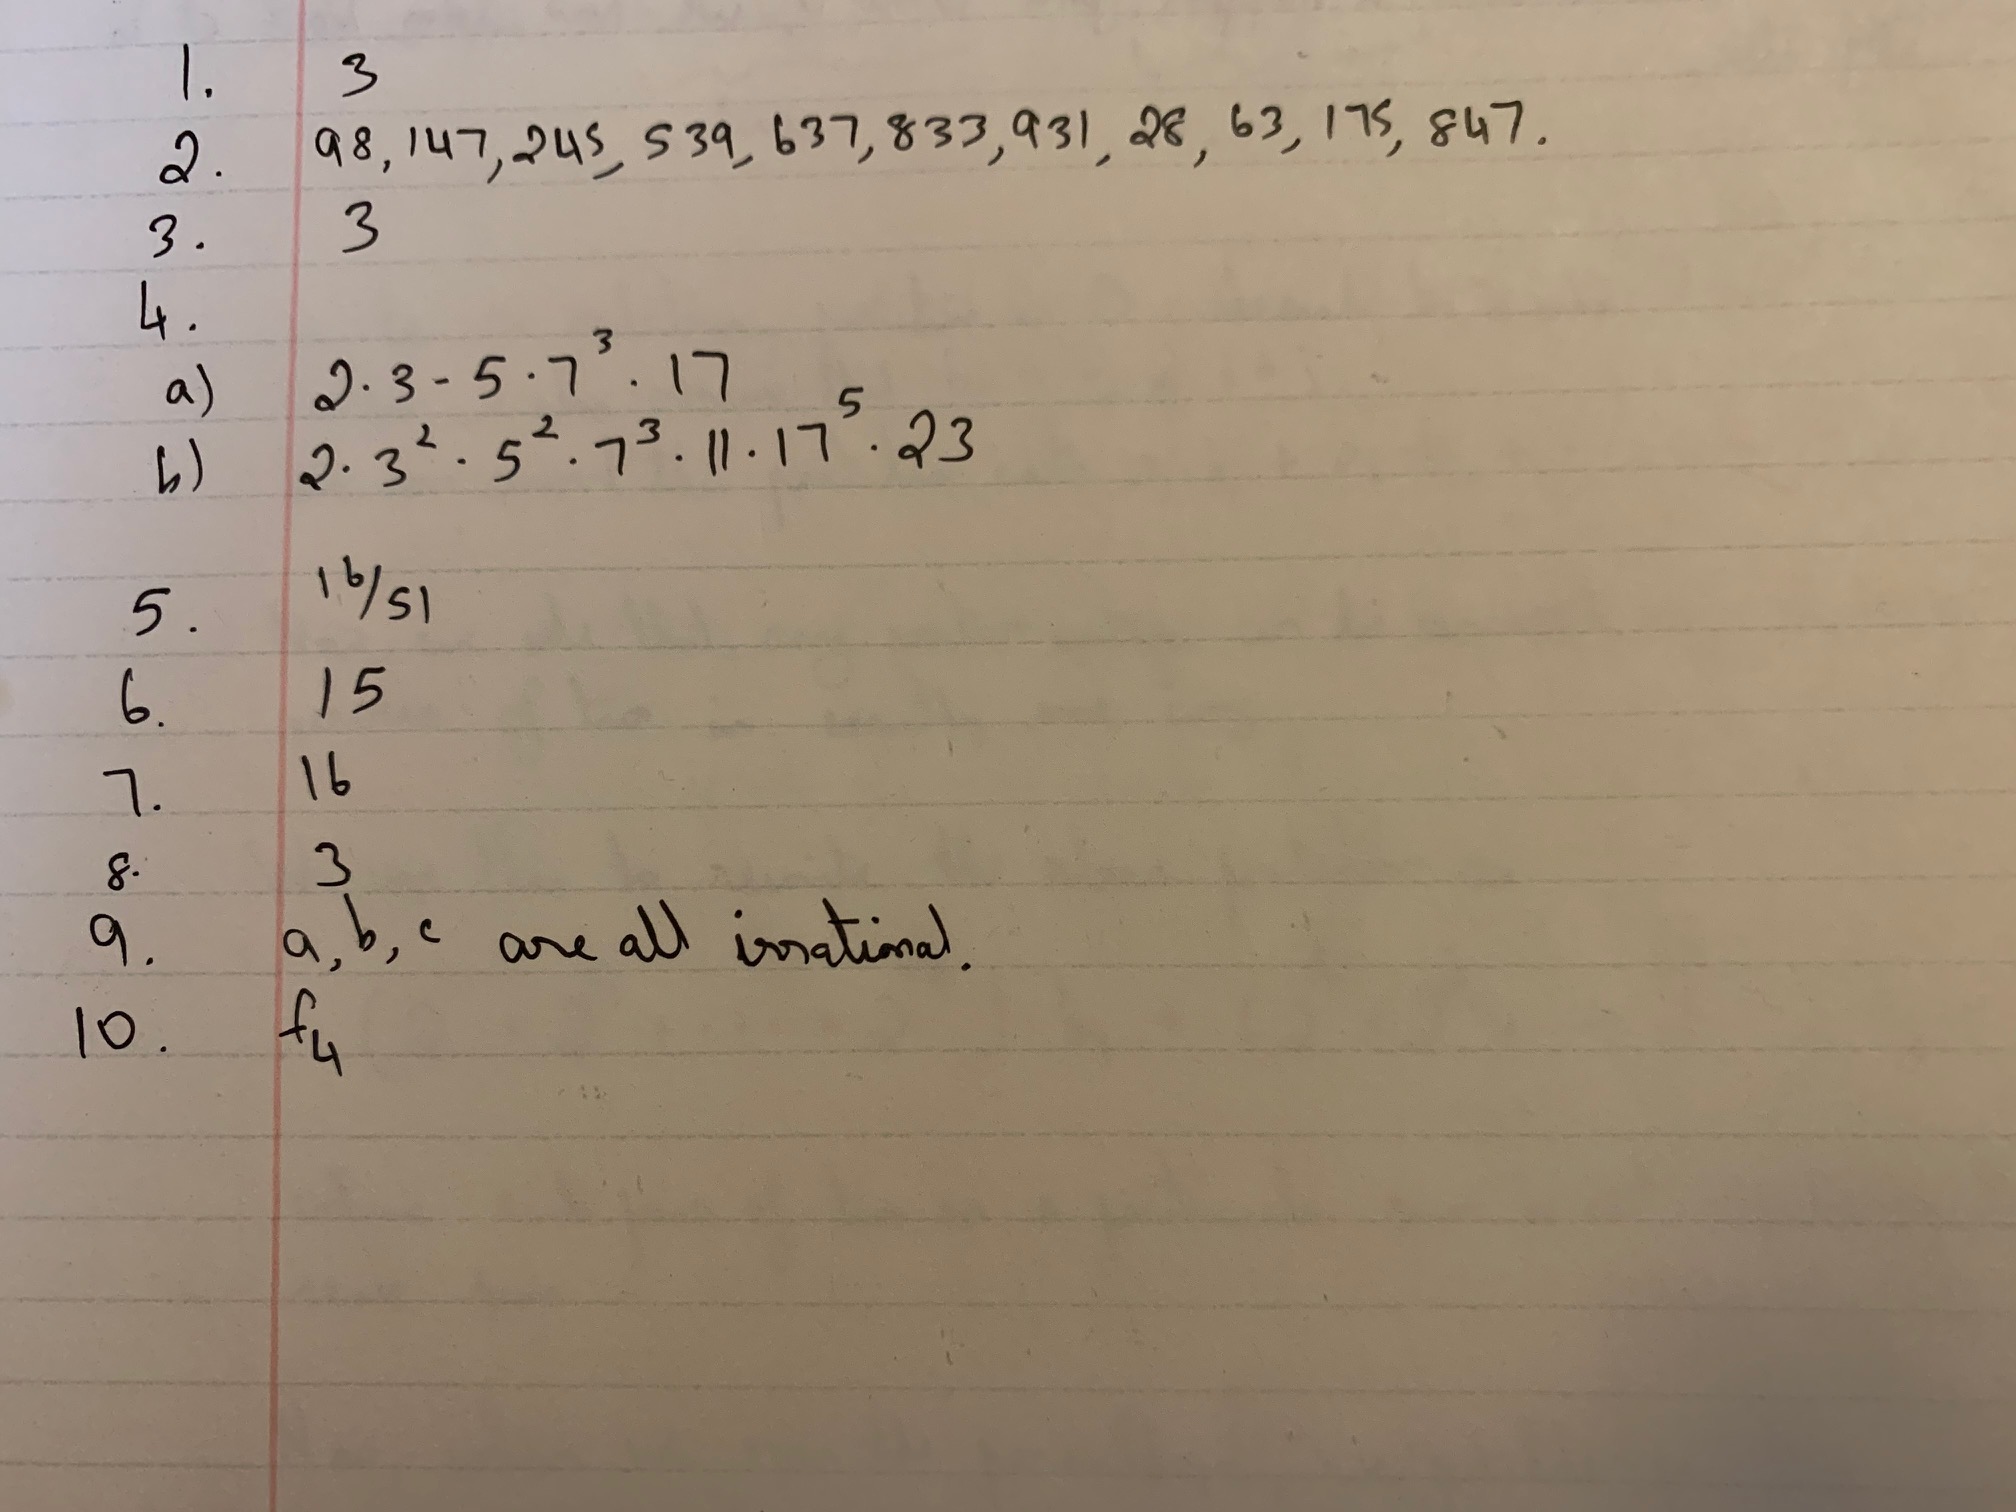 1. 3
2. 98, 147, 245, 539, 637, 833, 931, 28, 63, 175, 847.
3. 3
4.
a) 2·3-5·7³·17
b) 2·3²·5²·7³·11·17⁵·23
5. 16/51
6. 15
7. 16
8. 3
9. a, b, c are all irrational.
10. f₄